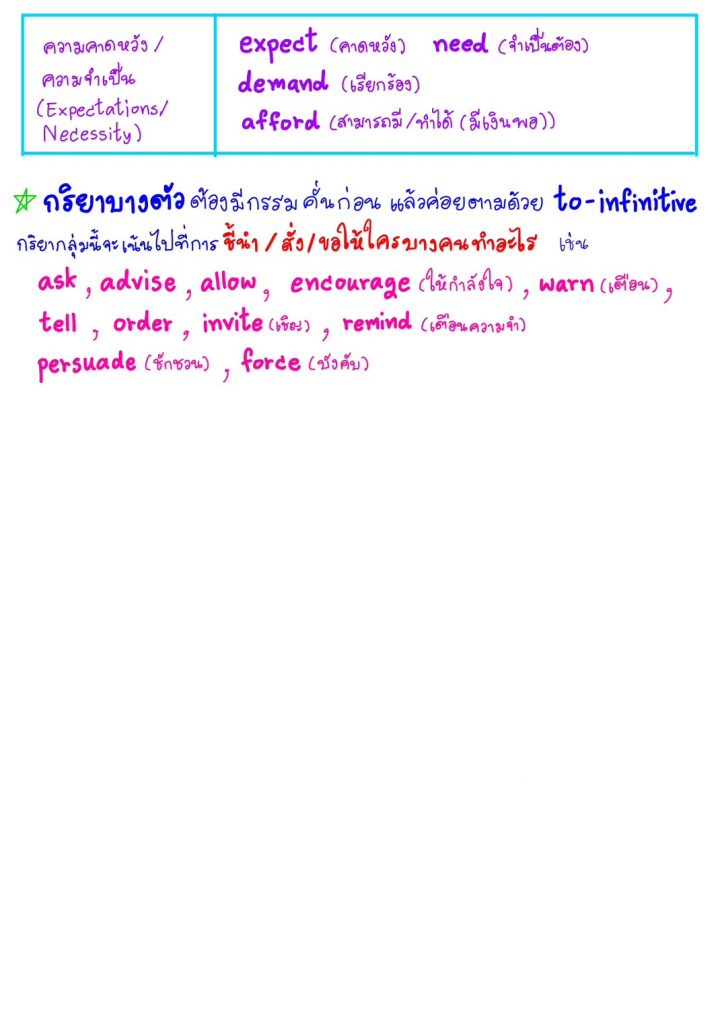 ความคาดหวัง /
ความจำเป็น
(Expectations/
Necessity)
expect (คาดหวัง) need (จำเป็นต้อง)
demand (เรียกร้อง)
afford (สามารถมี/ทำได้ (มีเงินพอ))
☆ กริยาบางตัว ต้องมีกรรมคั่นก่อน แล้วค่อยตามด้วย to-infinitive
กริยากลุ่มนี้จะเน้นไปที่การ ชี้นำ / สั่ง/ขอให้ใครบางคนทำอะไร เช่น
ask , advise , allow , encourage (ให้กำลังใจ) , warn (เตือน) ,
tell , order , invite (เชิญ) , remind (เตือนความจำ)
persuade (ชักชวน) , force (บังคับ)